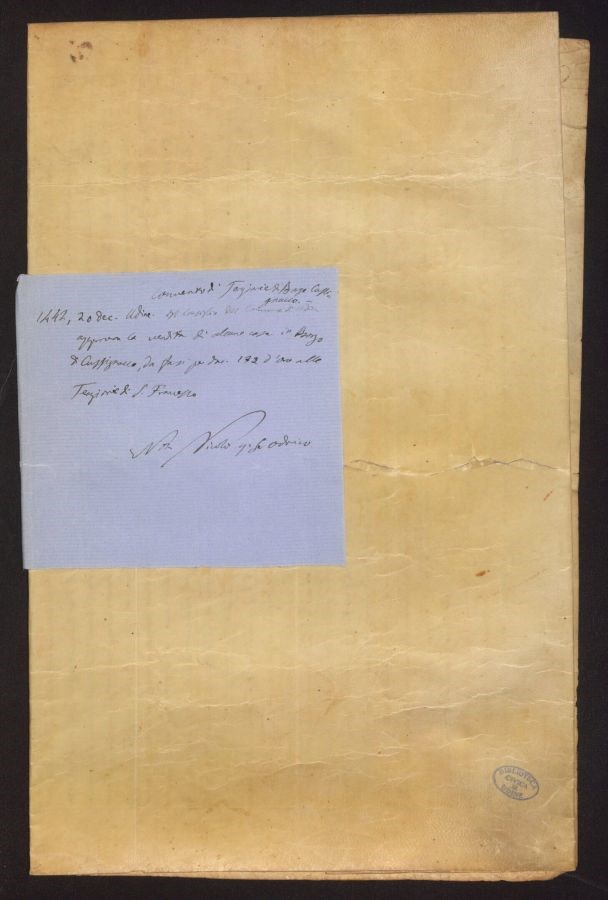 Convento di Terziarie di Borgo Cussi-
gnacco. -
1442, 20 dec. Udine. Il Consiglio del Comune di Udine
approva la vendita di alcune case in Borgo
di Cussignacco, da farsi per duc. 192 d'oro alle
Terziarie di S. Francesco
Not. Nicolò q. Odorico
BIBLIOTECA
CIVICA
DI
UDINE